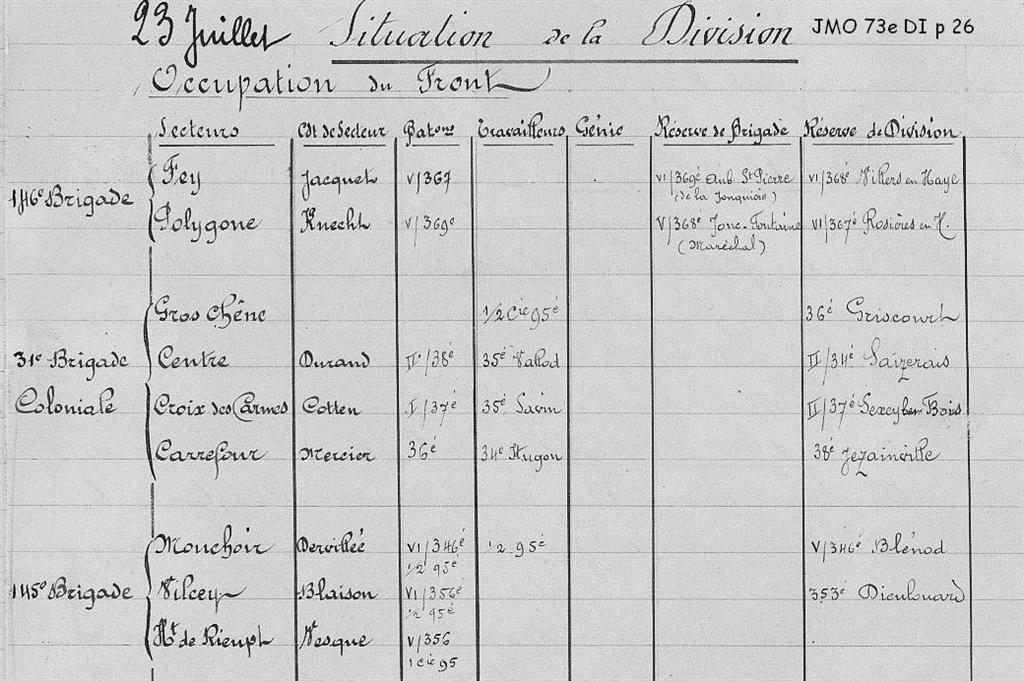 23 Juillet Situation de la Division JMO 73e DI p 26
Occupation du Front
Secteurs Cdt de Secteur Batons Travailleurs Génie Réserve de Brigade Réserve de Division
146e Brigade
Fey Jacquet V/367 VI/369e Aub. St Pierre VI/368e Villers en Haye
(de la Jonquière)
Polygone Knecht V/369e V/368e Jonc-Fontaine VI/367e Rosières en H.
(Maréchal)
Gros Chêne 1/2 Cie 95e 36e Griscourt
31e Brigade Centre Durand II/38e 35e II/34e Saizerais
Coloniale Croix des Carmes Cotten I/37e 35e Savin II/37e
Carrefour Mercier 36e 34e Hugon 38e Jezainville
Mouchoir Dervillée VI/346e 1/2 95e V/346e Blénod
1/2 95e
145e Brigade Vilcey Blaison VI/356e 353e Dieulouard
1/2 95e
Ht de Rieupt Vesque V/356
1 cie 95